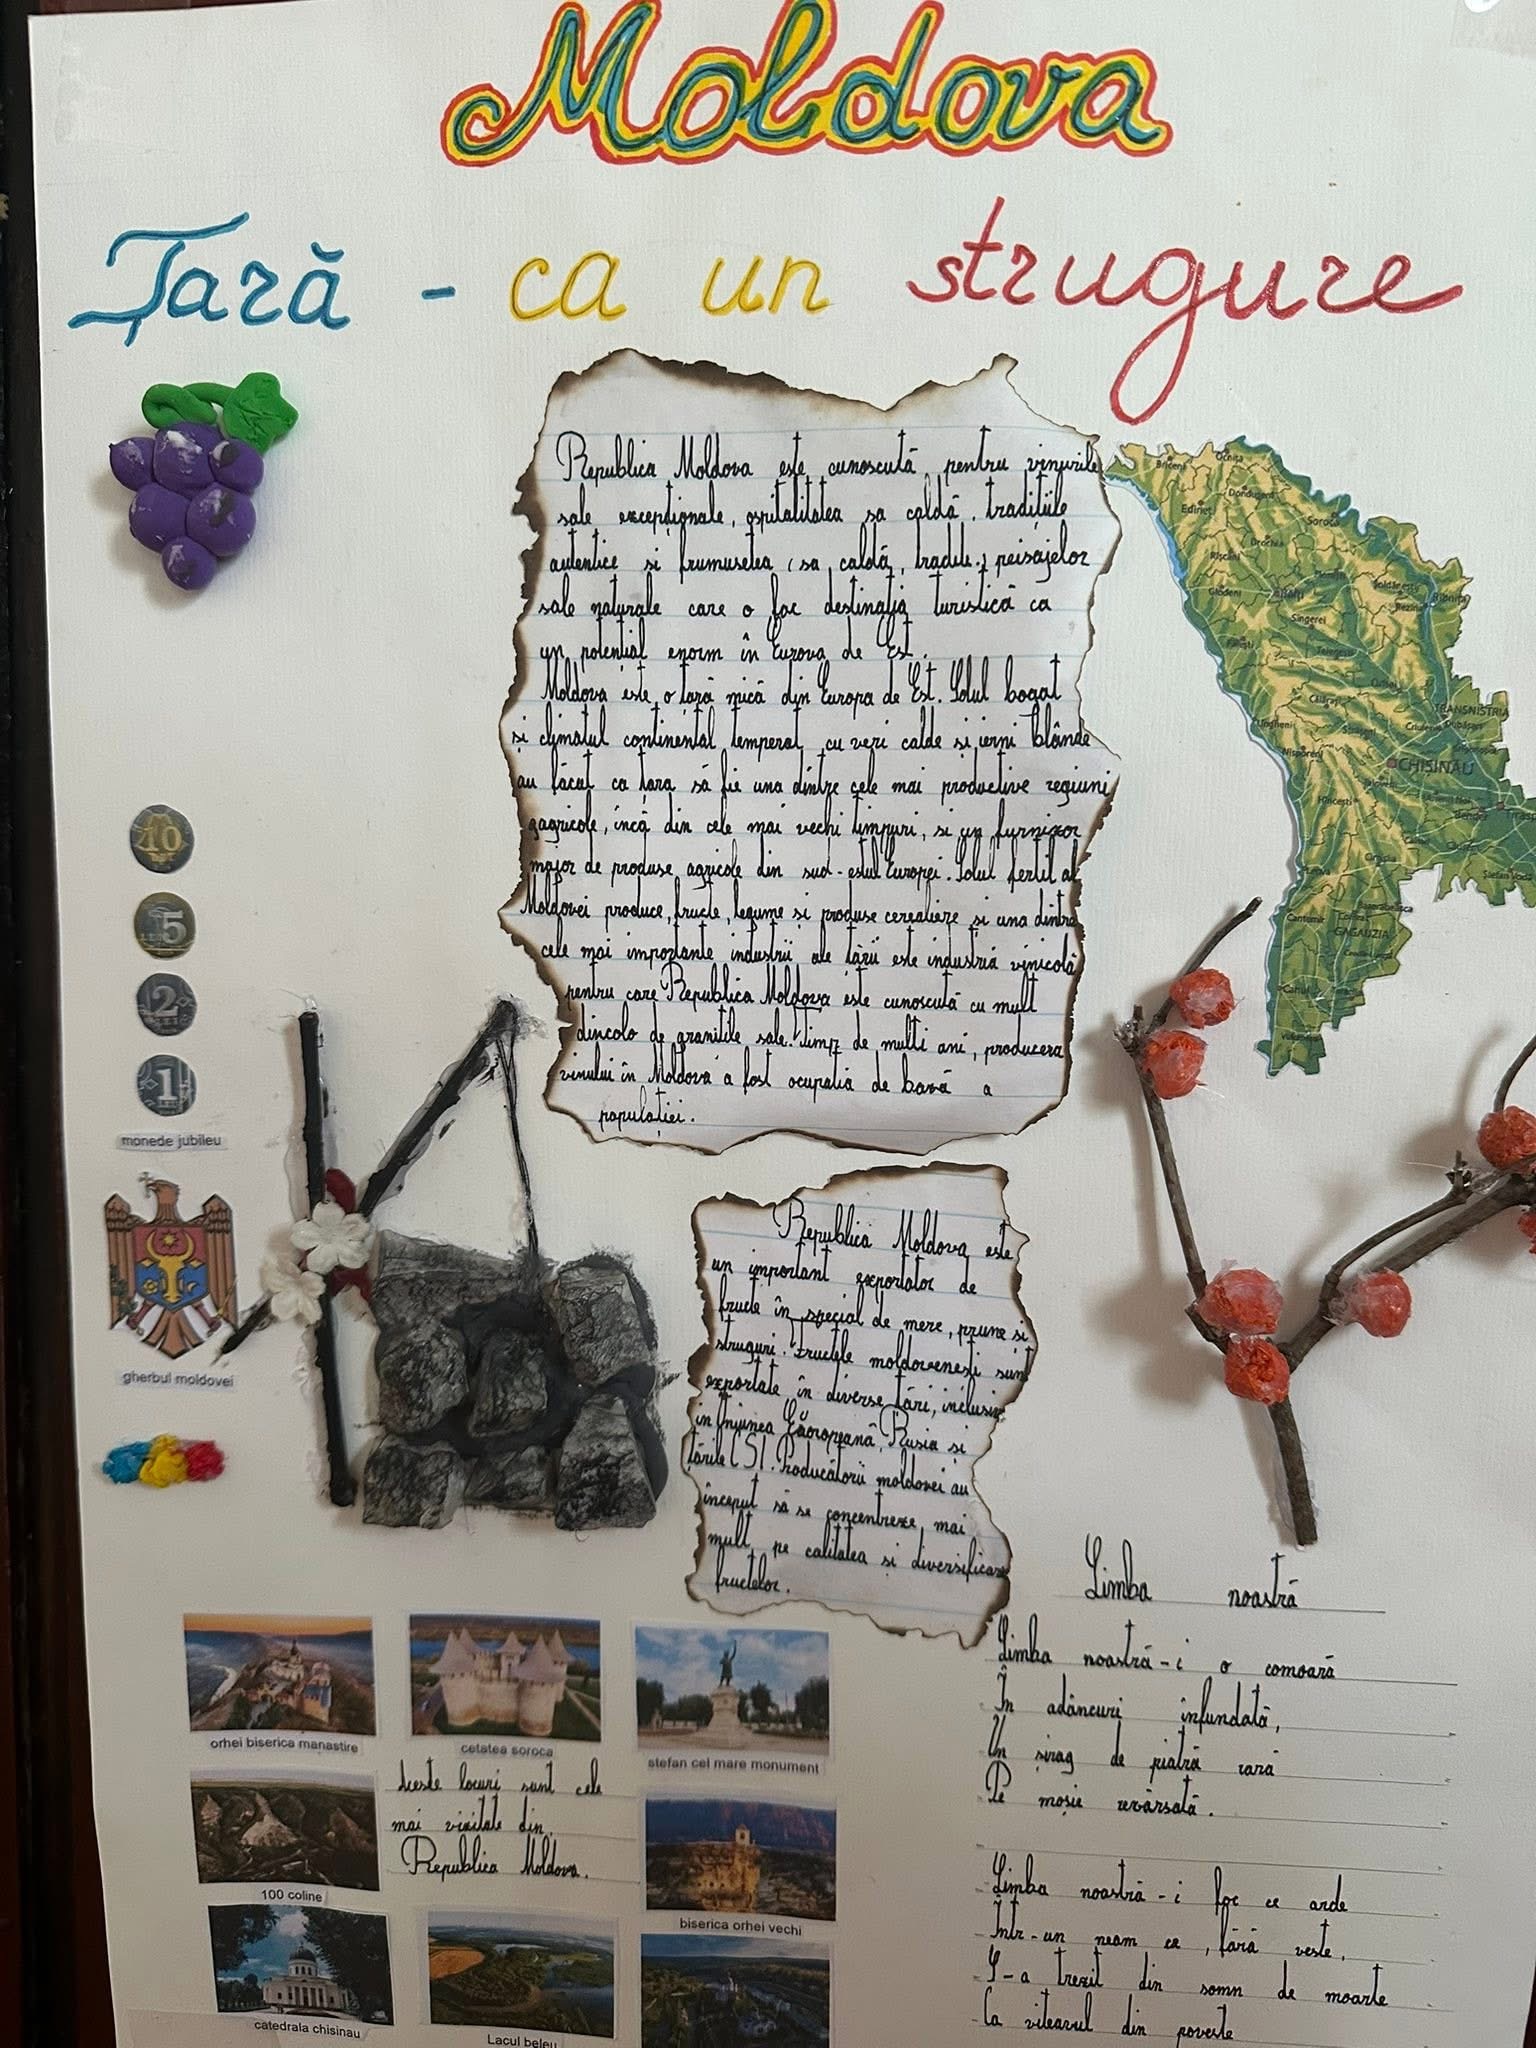 Moldova
Țară - ca un strugure
Republica Moldova este cunoscută pentru vinurile
sale excepționale, ospitalitatea sa caldă, tradițiile
autentice si frumusetea (sa caldă, tradele.) peisajelor
sale naturale care o fac destinația turistică ca
un potențial enorm în Eurova de Est.
Moldova este o tară mică din Europa de Est. Solul bogat
și climatul continental temperat cu veri calde si ierni blânde
au făcut ca tara să fie una dintre cele mai productive regiuni
agricole, încă din cele mai vechi timpuri, si un furnizor
major de produse agricole din sud-estul Europei. Solul fertil al
Moldovei produce, fructe, legume si produse cerealiere si una dintre
cele mai importante industrii ale tării este industria vinicolă
pentru care Republica Moldova este cunoscută cu mult
dincolo de granitile sale. Timp de multi ani, producera
vinului în Moldova a fost ocupatia de bază a
populației.
Briceni
Ocnița
Dondușeni
Edineț
Soroca
Drochia
Rîșcani
Glodeni
Bălți
Sîngerei
Fălești
Telenești
Călărași
Ungheni
Nisporeni
TRANSNISTRIA
CHISINAU
Hîncești
Bender
Căușeni
Ștefan Vodă
Cantemir
Basarabeasca
GAGAUZIA
Cahul
10
5
2
1
monede jubileu
gherbul moldovei
Republica Moldova este
un important exportator de
fructe în special de mere, prune si
struguri. Fructele moldovenești sunt
exportate în diverse tări, inclusiv
in Uniunea Europeană, Rusia si
tările CSI. Producătorii moldovei au
început să se concentreze mai
mult pe calitatea si diversificare
fructelor.
orhei biserica manastire
cetatea soroca
stefan cel mare monument
Aceste locuri sunt cele
mai vizitate din
Republica Moldova.
100 coline
biserica orhei vechi
catedrala chisinau
Lacul beleu
Limba noastră
Limba noastră-i o comoară
În adâncuri înfundată,
Un șirag de piatră rară
Pe moșie revărsată.
Limba noastră-i foc ce arde
Într-un neam ce, fără veste,
S-a trezit din somn de moarte
Ca viteazul din poveste